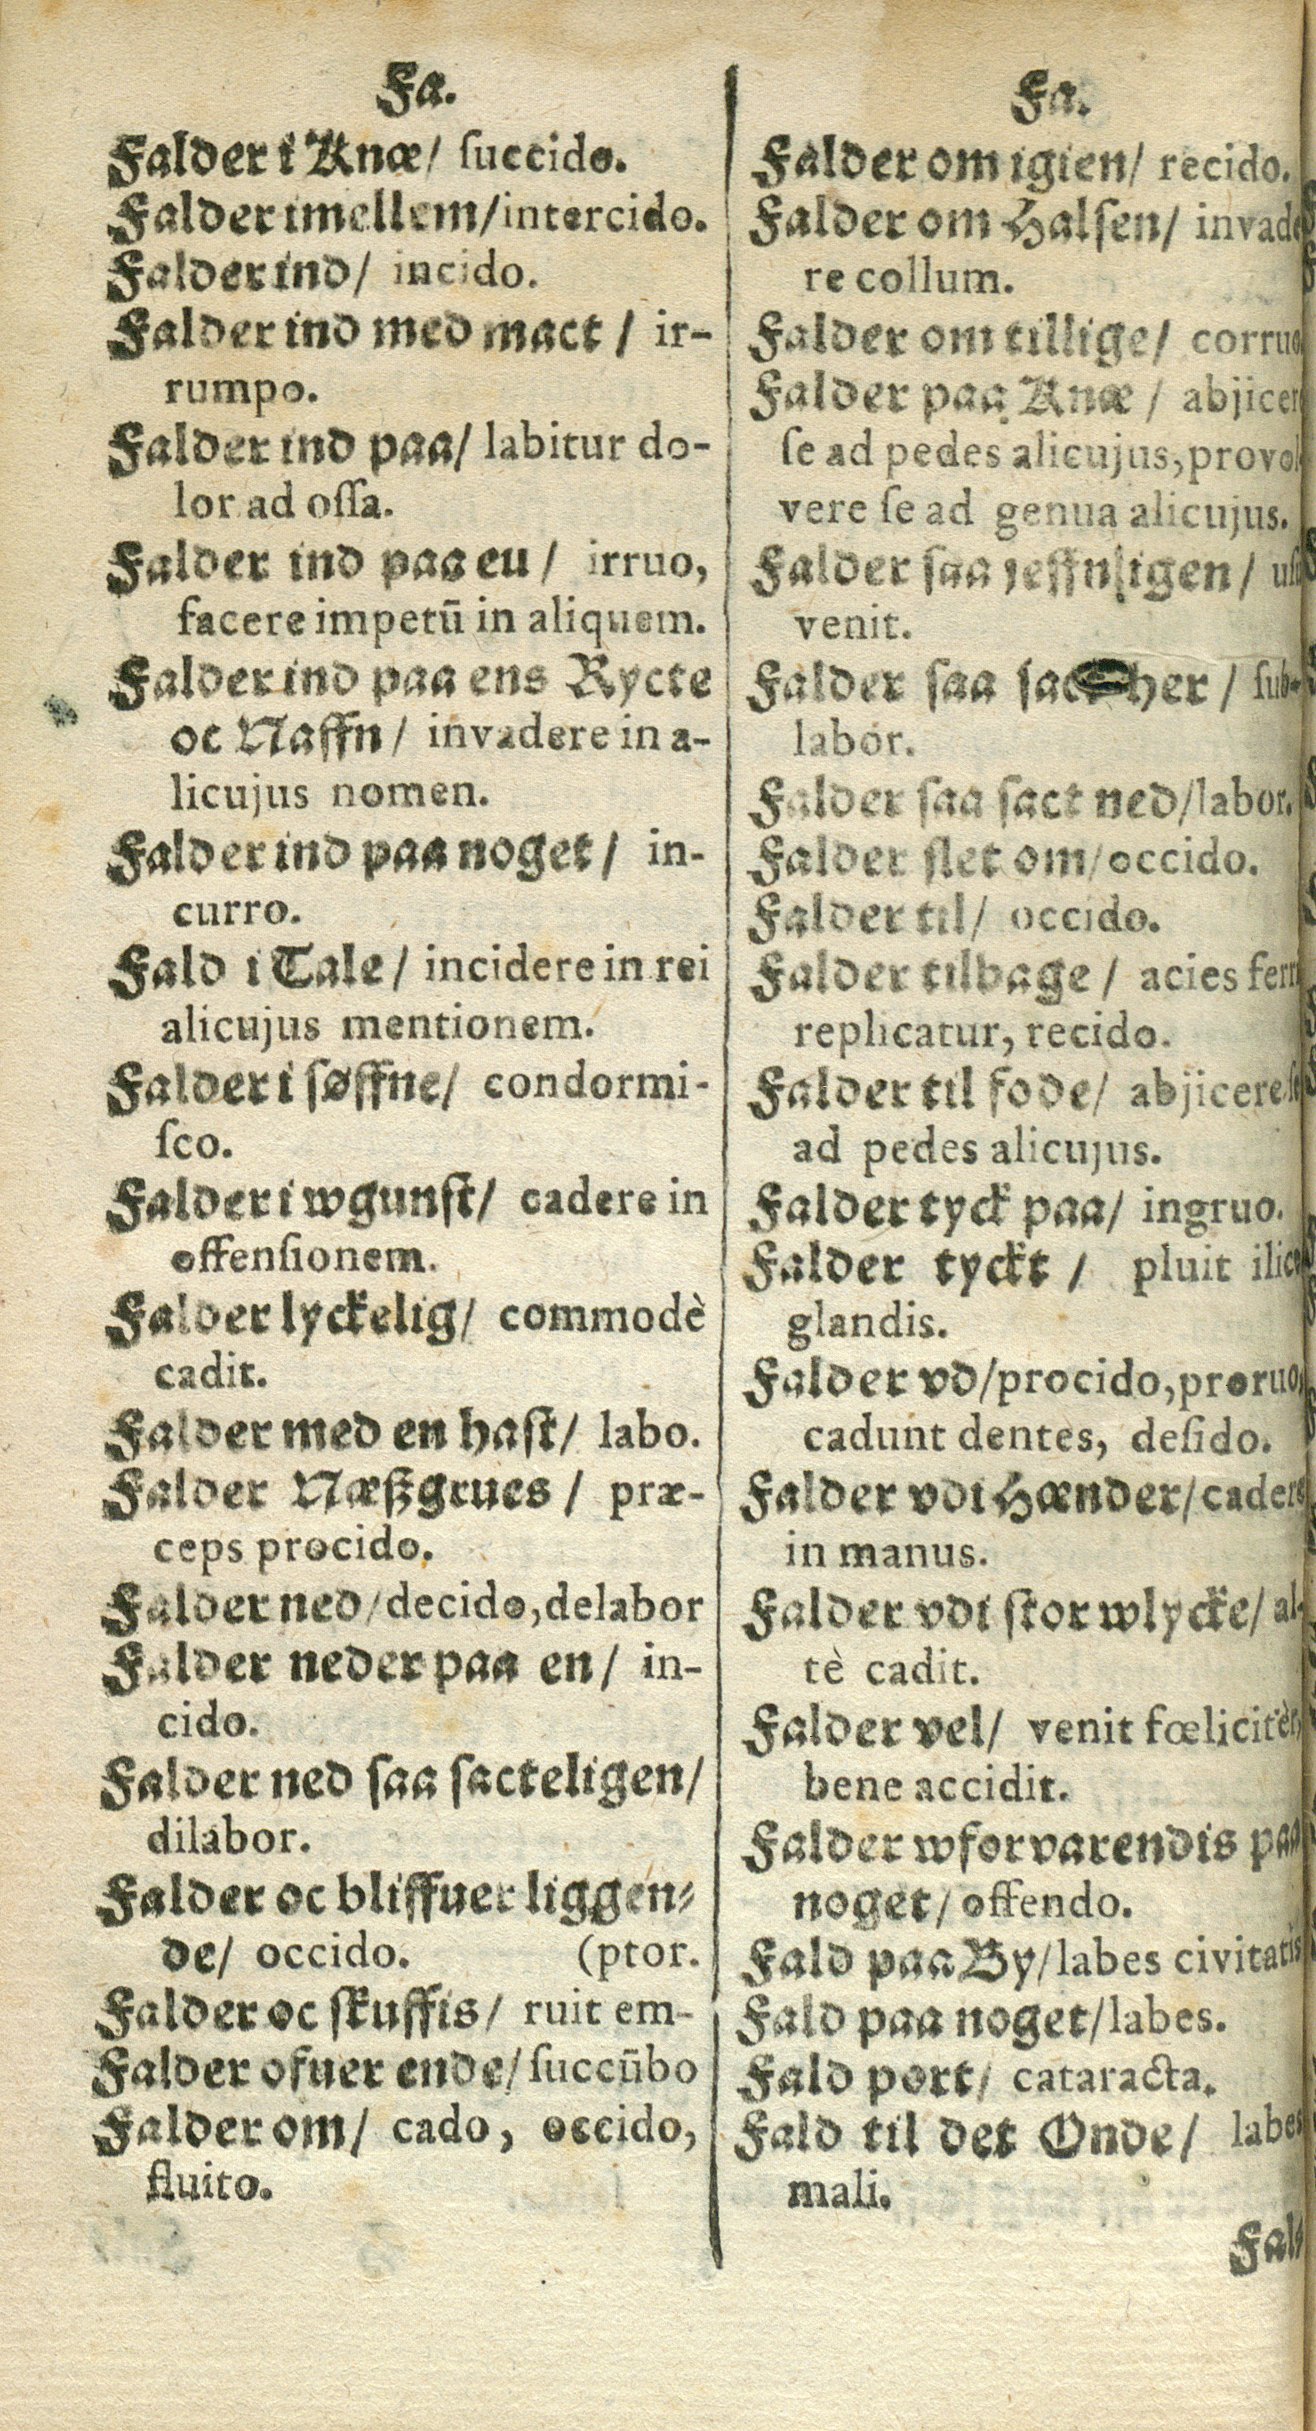 Fa.
Falder i Knæ/ ſuccido.
Falder imellem/intercido.
Falder ind/ incido.
Falder ind med mact / ir-
rumpo.
Falder ind paa/ labitur do-
lor ad oſſa.
Falder ind paa eu / irruo,
facere impetū in aliquem.
Falder ind paa ens Rycte
oc Naffn/ invadere in a-
licujus nomen.
Falder ind paa noget/ in-
curro.
Fald i Tale/ incidere in rei
alicujus mentionem.
Falder i ſøffne/ condormi-
ſco.
Falder i wgunſt/ cadere in
offenſionem.
Falder lyckelig/ commodè
cadit.
Falder med en haſt/ labo.
Falder Næſzgrues / præ-
ceps procido.
Falder ned/decido,delabor
Falder neder paa en/ in-
cido.
Falder ned ſaa ſacteligen/
dilabor.
Falder oc bliffuer liggen-
de/ occido. (ptor.
Falder oc ſkuffis/ ruit em-
Falder ofuer ende/ſuccūbo
Falder om/ cado, occido,
fluito.
Fa.
Falder om igien/ recido.
Falder om Halſen/ invade
re collum.
Falder om tillige/ corruo
Falder paa Knæ / abjicer
ſe ad pedes alicujus,provol
vere ſe ad genua alicujus.
Falder ſaa jeffnligen/ uſu
venit.
Falder ſaa ſact her / ſub-
labor.
Falder ſaa ſact ned/labor.
Falder ſlet om/occido.
Falder til/ occido.
Falder tilbage/ acies ferri
replicatur, recido.
Falder til fode/ abjicere ſe
ad pedes alicujus.
Falder tyck paa/ ingruo.
Falder tyckt / pluit ilice
glandis.
Falder vd/procido,proruo,
cadunt dentes, deſido.
Falder vdi Hænder/cadere
in manus.
Falder vdi ſtor wlycke/ al-
tè cadit.
Falder vel/ venit fœlicitèr,
bene accidit.
Falder wforvarendis paa
noget/ offendo.
Fald paa By/labes civitatis
Fald paa noget/labes.
Fald port/ cataracta.
Fald til det Onde/ labes
mali.
Fal-